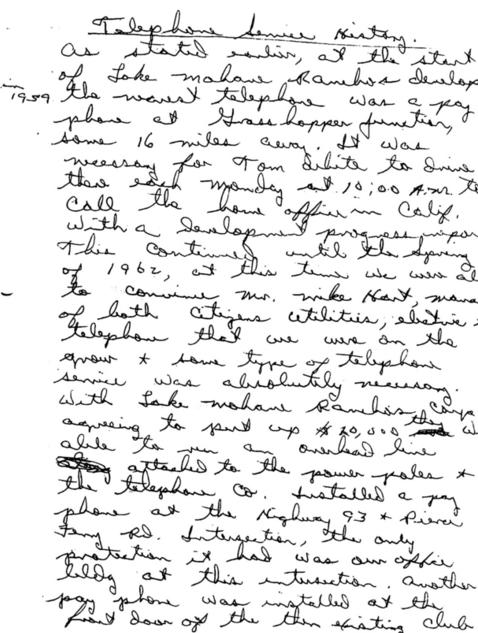 Telephone Service History.
As stated earlier, at the start
of Lake Mohave Ranchos develop
1959 the nearest telephone was a pay
phone at Grasshopper junction,
some 16 miles away. It was
necessary for Tom White to drive
there each Monday at 10:00 A.M. to
call the home office in Calif.
with a development progress repor
This continued until the Spring
of 1962, at this time we were abl
to convince Mr. Mike Hant, mana
of both Citizens Utilities, electric
telephone that we were on the
grow & some type of telephone
service was absolutely necessary.
With Lake Mohave Ranchos Corp.
agreeing to put up $20,000 they w
able to run an overhead line
attached to the power poles &
the telephone Co. Installed a pay
phone at the Highway 93 & Pierce
Ferry Rd. Intersection, the only
protection it had was our office
bldg at this intersection. Another
pay phone was installed at the
front door of the then existing club